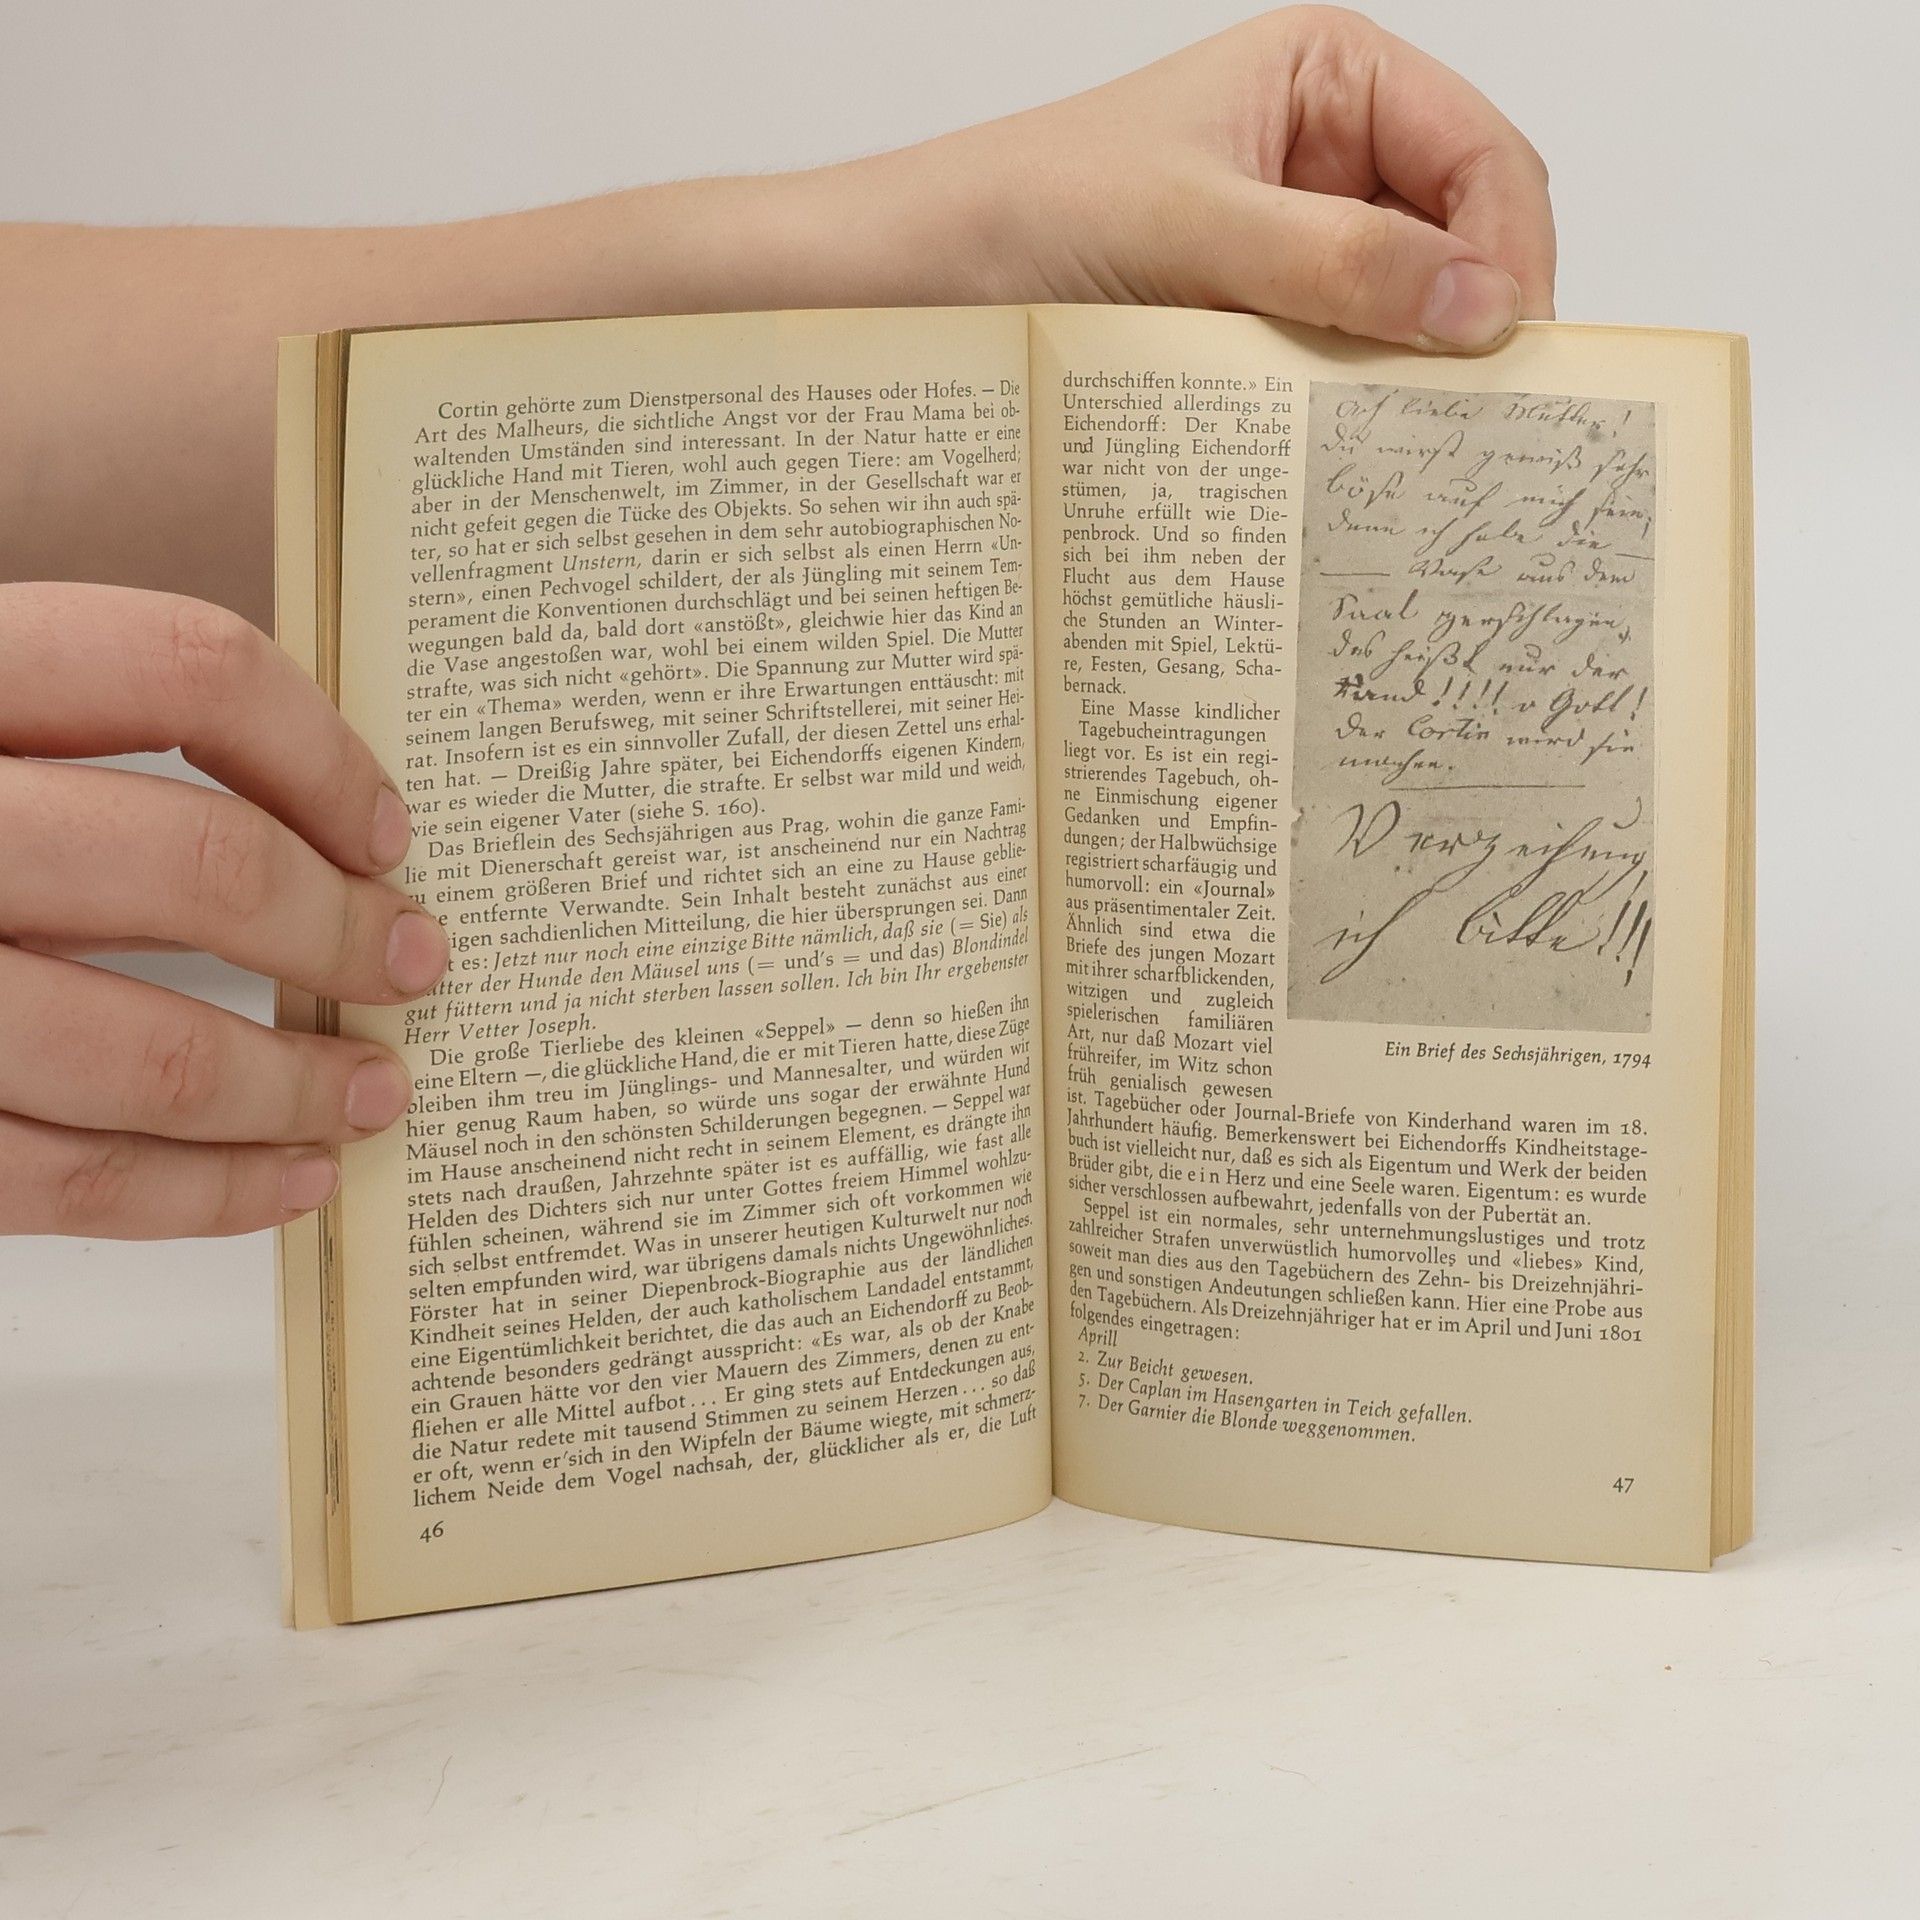 Cortin gehörte zum Dienstpersonal des Hauses oder Hofes. – Die
Art des Malheurs, die sichtliche Angst vor der Frau Mama bei ob-
waltenden Umständen sind interessant. In der Natur hatte er eine
glückliche Hand mit Tieren, wohl auch gegen Tiere: am Vogelherd;
aber in der Menschenwelt, im Zimmer, in der Gesellschaft war er
nicht gefeit gegen die Tücke des Objekts. So sehen wir ihn auch spä-
ter, so hat er sich selbst gesehen in dem sehr autobiographischen No-
vellenfragment Unstern, darin er sich selbst als einen Herrn «Un-
stern», einen Pechvogel schildert, der als Jüngling mit seinem Tem-
perament die Konventionen durchschlägt und bei seinen heftigen Be-
wegungen bald da, bald dort «anstößt», gleichwie hier das Kind an
die Vase angestoßen war, wohl bei einem wilden Spiel. Die Mutter
strafte, was sich nicht «gehört». Die Spannung zur Mutter wird spä-
ter ein «Thema» werden, wenn er ihre Erwartungen enttäuscht: mit
seinem langen Berufsweg, mit seiner Schriftstellerei, mit seiner Hei-
rat. Insofern ist es ein sinnvoller Zufall, der diesen Zettel uns erhal-
ten hat. – Dreißig Jahre später, bei Eichendorffs eigenen Kindern,
war es wieder die Mutter, die strafte. Er selbst war mild und weich,
wie sein eigener Vater (siehe S. 160).
Das Brieflein des Sechsjährigen aus Prag, wohin die ganze Fami-
lie mit Dienerschaft gereist war, ist anscheinend nur ein Nachtrag
zu einem größeren Brief und richtet sich an eine zu Hause geblie-
entfernte Verwandte. Sein Inhalt besteht zunächst aus einer
sachdienlichen Mitteilung, die hier übersprungen sei. Dann
es: Jetzt nur noch eine einzige Bitte nämlich, daß sie (= Sie) als
der Hunde den Mäusel uns (= und's = und das) Blondindel
gut füttern und ja nicht sterben lassen sollen. Ich bin Ihr ergebenster
Herr Vetter Joseph.
Die große Tierliebe des kleinen «Seppel» – denn so hießen ihn
seine Eltern –, die glückliche Hand, die er mit Tieren hatte, diese Züge
bleiben ihm treu im Jünglings- und Mannesalter, und würden wir
hier genug Raum haben, so würde uns sogar der erwähnte Hund
Mäusel noch in den schönsten Schilderungen begegnen. – Seppel war
im Hause anscheinend nicht recht in seinem Element, es drängte ihn
stets nach draußen, Jahrzehnte später ist es auffällig, wie fast alle
Helden des Dichters sich nur unter Gottes freiem Himmel wohlzu-
fühlen scheinen, während sie im Zimmer sich oft vorkommen wie
sich selbst entfremdet. Was in unserer heutigen Kulturwelt nur noch
selten empfunden wird, war übrigens damals nichts Ungewöhnliches.
Förster hat in seiner Diepenbrock-Biographie aus der ländlichen
Kindheit seines Helden, der auch katholischem Landadel entstammt,
eine Eigentümlichkeit berichtet, die das auch an Eichendorff zu Beob-
achtende besonders gedrängt ausspricht: «Es war, als ob der Knabe
ein Grauen hätte vor den vier Mauern des Zimmers, denen zu ent-
fliehen er alle Mittel aufbot ... Er ging stets auf Entdeckungen aus,
die Natur redete mit tausend Stimmen zu seinem Herzen ... so daß
er oft, wenn er sich in den Wipfeln der Bäume wiegte, mit schmerz-
lichem Neide dem Vogel nachsah, der, glücklicher als er, die Luft
46
durchschiffen konnte.» Ein
Unterschied allerdings zu
Eichendorff: Der Knabe
und Jüngling Eichendorff
war nicht von der unge-
stümen, ja, tragischen
Unruhe erfüllt wie Die-
penbrock. Und so finden
sich bei ihm neben der
Flucht aus dem Hause
höchst gemütliche häusli-
che Stunden an Winter-
abenden mit Spiel, Lektü-
re, Festen, Gesang, Scha-
bernack.
Eine Masse kindlicher
Tagebucheintragungen
liegt vor. Es ist ein regi-
strierendes Tagebuch, oh-
ne Einmischung eigener
Gedanken und Empfin-
dungen; der Halbwüchsige
registriert scharfäugig und
humorvoll: ein «Journal»
aus präsentimentaler Zeit.
Ähnlich sind etwa die
Briefe des jungen Mozart
mit ihrer scharfblickenden,
witzigen und zugleich
spielerischen familiären
Art, nur daß Mozart viel
frühreifer, im Witz schon
früh genialisch gewesen
ist. Tagebücher oder Journal-Briefe von Kinderhand waren im 18.
Jahrhundert häufig. Bemerkenswert bei Eichendorffs Kindheitstage-
buch ist vielleicht nur, daß es sich als Eigentum und Werk der beiden
Brüder gibt, die e i n Herz und eine Seele waren. Eigentum: es wurde
sicher verschlossen aufbewahrt, jedenfalls von der Pubertät an.
Seppel ist ein normales, sehr unternehmungslustiges und trotz
zahlreicher Strafen unverwüstlich humorvolles und «liebes» Kind,
soweit man dies aus den Tagebüchern des Zehn- bis Dreizehnjähri-
gen und sonstigen Andeutungen schließen kann. Hier eine Probe aus
den Tagebüchern. Als Dreizehnjähriger hat er im April und Juni 1801
folgendes eingetragen:
Aprill
2. Zur Beicht gewesen.
5. Der Caplan im Hasengarten in Teich gefallen.
7. Der Garnier die Blonde weggenommen.
Ach liebe Mutter!
Du wirst gewiß sehr
böse auf mich sein,
denn ich habe die —
— Vase aus dem
Saal zerschlagen,
das heißt nur der
Rand!!!! o Gott!
der Cortin wird sie
machen.
Verzeihung
ich bitte!!!
Ein Brief des Sechsjährigen, 1794
47